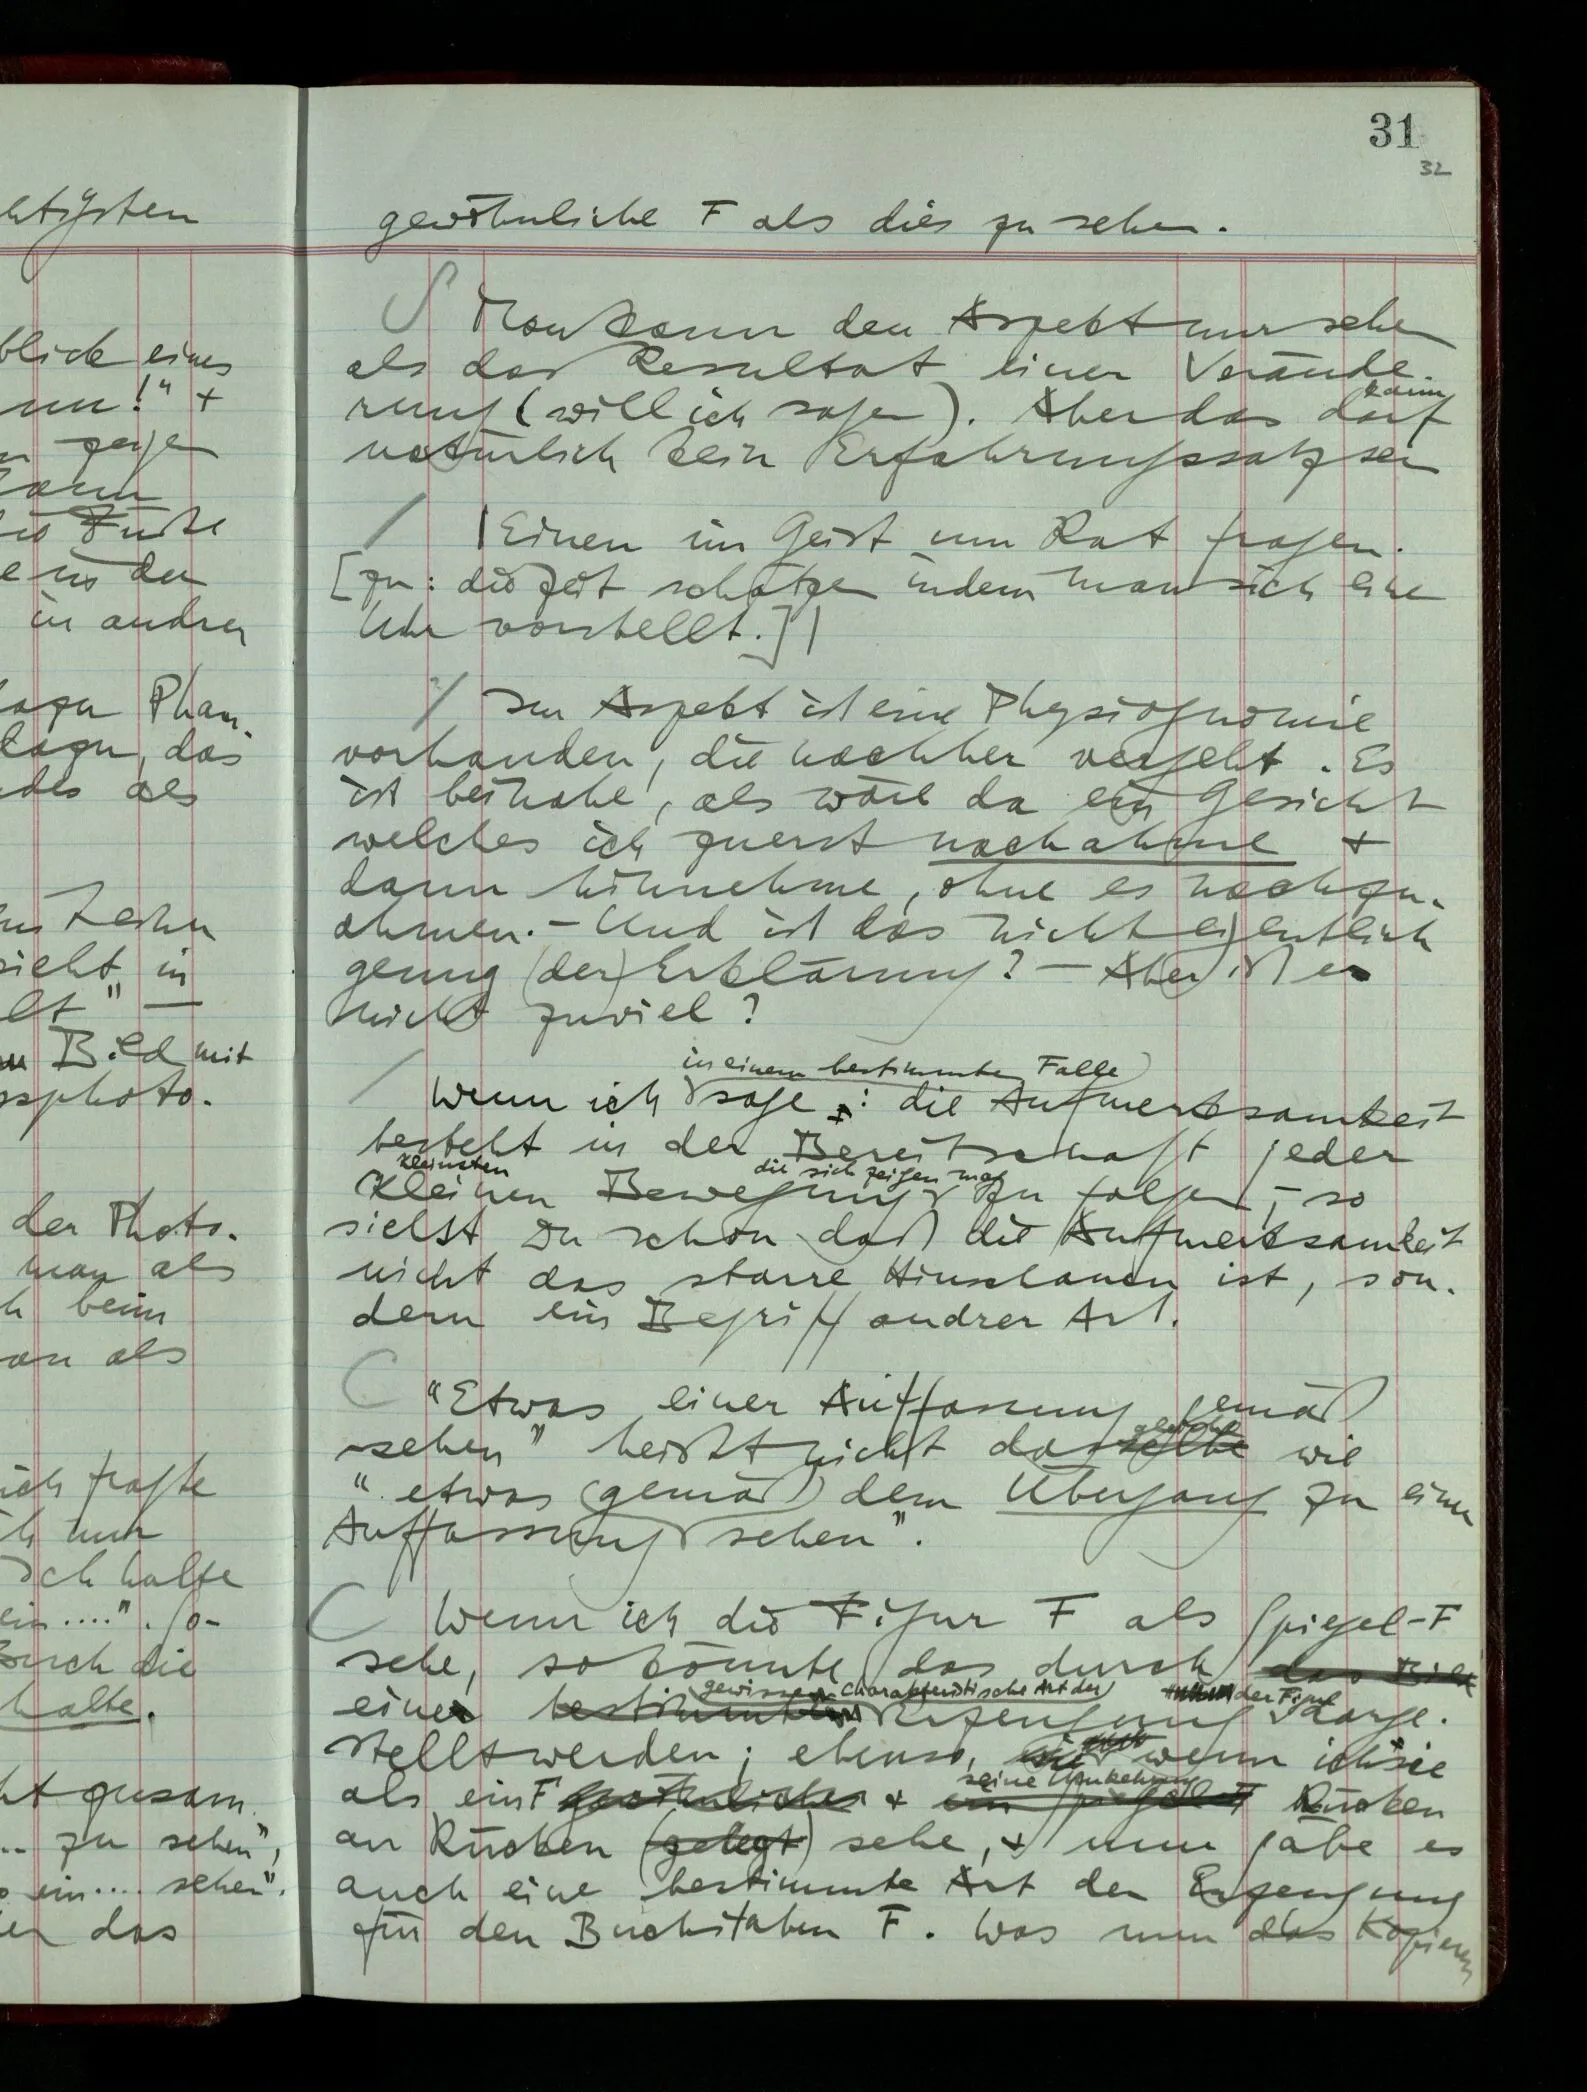 31
32
gewöhnliche F als dies zu sehen.
S Man kann den Aspekt nur sehen
als das Resultat einer Verände-
rung (will ich sagen). Aber das darf
kann
natürlich kein Erfahrungssatz sein
/ | Einen im Geist um Rat fragen.
[zu: die Zeit schätzen indem man sich eine
Uhr vorstellt.] |
/ Im Aspekt ist eine Physiognomie
vorhanden, die nachher vergeht. Es
ist beinahe, als wäre da ein Gesicht
welches ich zuerst nachahme +
dann hinnehme, ohne es nachzu-
ahmen. – Und ist das nicht eigentlich
genug (der) Erklärung? – Aber ist es
nicht zuviel?
in einem bestimmten Falle
/ Wenn ich sage: die Aufmerksamkeit
besteht in der Bereitschaft jeder
kleinsten die sich zeigen mag
kleinen Bewegung zu folgen, – so
siehst Du schon daß die Aufmerksamkeit
nicht das starre Hinschauen ist, son-
dern ein Begriff andrer Art.
C "Etwas einer Auffassung gemäß
gleiche
sehen" heißt nicht dasselbe wie
"etwas (gemäß) dem Übergang zu einer
Auffassung sehen".
C Wenn ich die Figur F als Spiegel-F
sehe, so könnte das durch das Bild
gewissen charakteristische Art der der Figur
einer bestimmten Erzeugung darge-
stellt werden; ebenso, wenn ich sie
seine Umkehrung
als ein F gewöhnliches + ein Spiegel F Rücken
an Rücken (gelegt) sehe, + nun gäbe es
auch eine bestimmte Art der Erzeugung
für den Buchstaben F. Was nun das Kopieren
htigsten
blick eines
nn!" +
zeigen
kann
in andrer
Phan-
das
als
sieht in
lt" –
Bild mit
ssphoto.
der Photo-
man als
h beim
an als
ich fragte
h nun
Ich halte
ein ...." . So-
durch die
halte.
ht zusam-
... zu sehen",
ein.... sehen".
er das